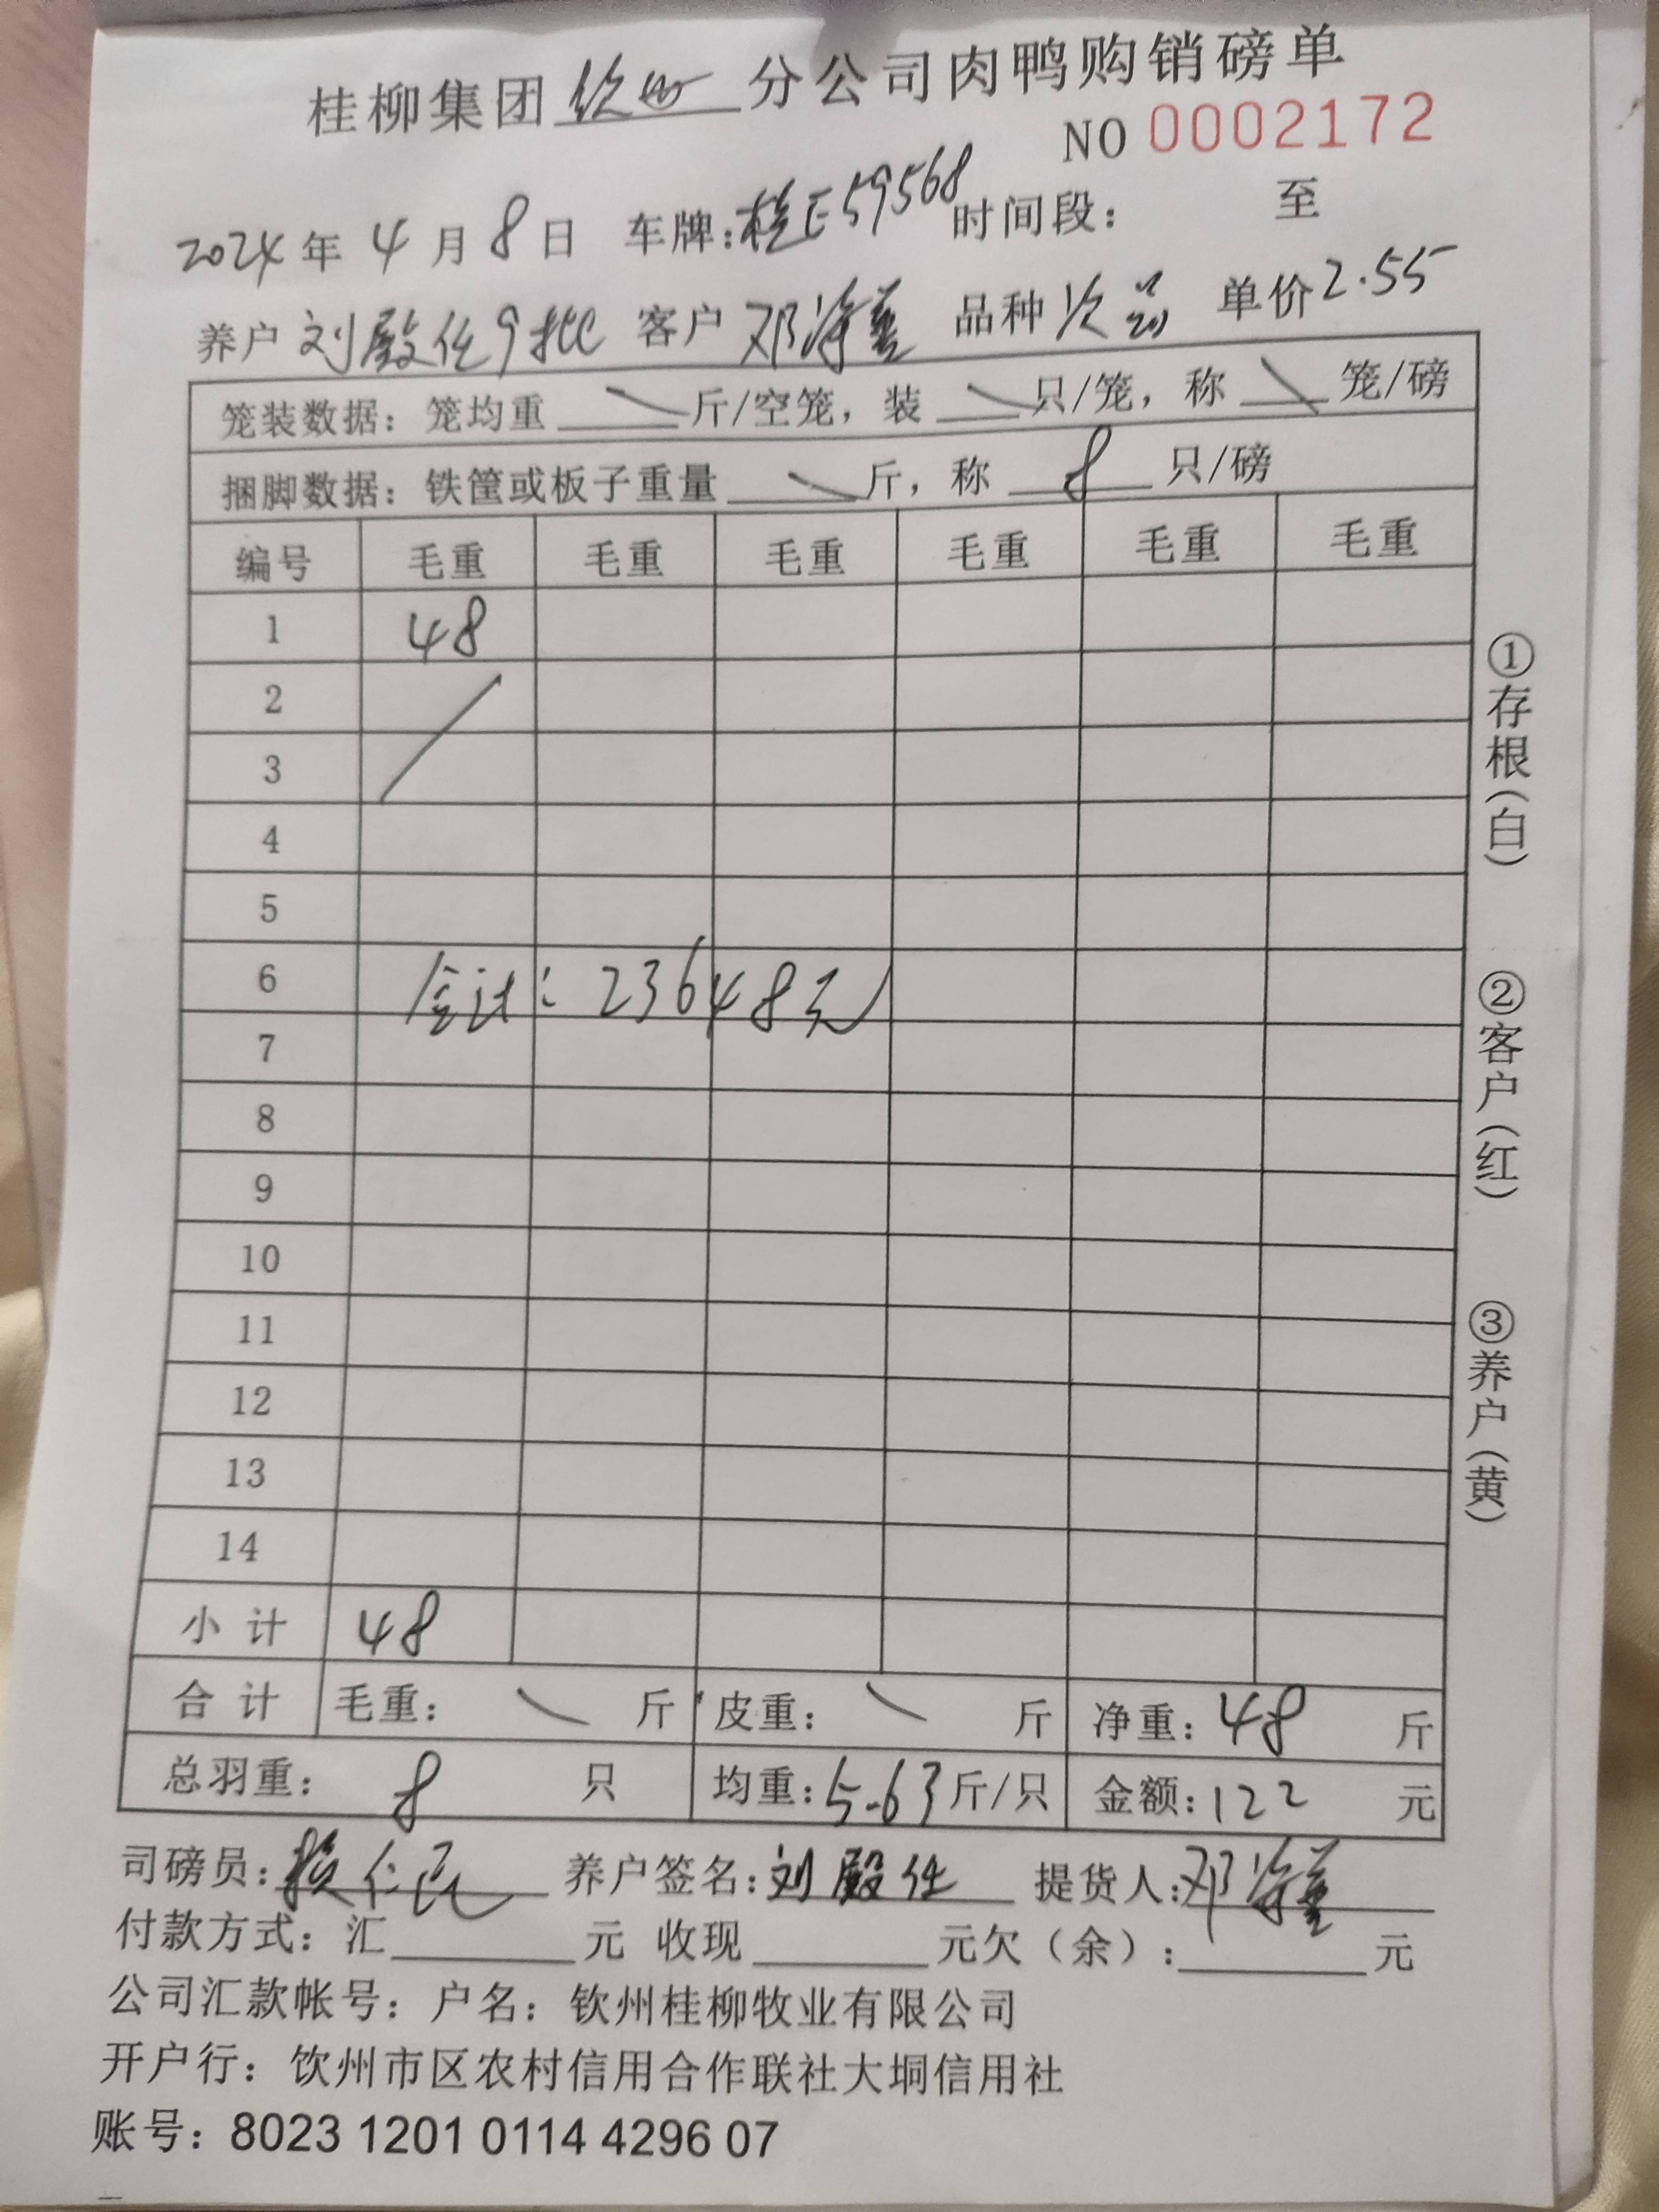 桂柳集团钦州分公司肉鸭购销磅单
NO 0002172
2024年4月8日 车牌:桂E59568 时间段: 至
养户 刘殿任9批 客户 邓 品种 次品 单价2.55
笼装数据: 笼均重 斤/空笼, 装 只/笼, 称 笼/磅
捆脚数据: 铁筐或板子重量 斤, 称 8 只/磅
编号 毛重 毛重 毛重 毛重 毛重 毛重
1 48
2
3
4
5
6 合计: 23648元
7
8
9
10
11
12
13
14
小计 48
合计 毛重: 斤 皮重: 斤 净重: 48 斤
总羽重: 8 只 均重: 5.63 斤/只 金额: 122 元
司磅员: 仁 养户签名: 刘殿任 提货人: 邓
付款方式: 汇 元 收现 元欠(余): 元
公司汇款帐号: 户名: 钦州桂柳牧业有限公司
开户行: 钦州市区农村信用合作联社大垌信用社
账号: 8023 1201 0114 4296 07
①存根(白)
②客户(红)
③养户(黄)